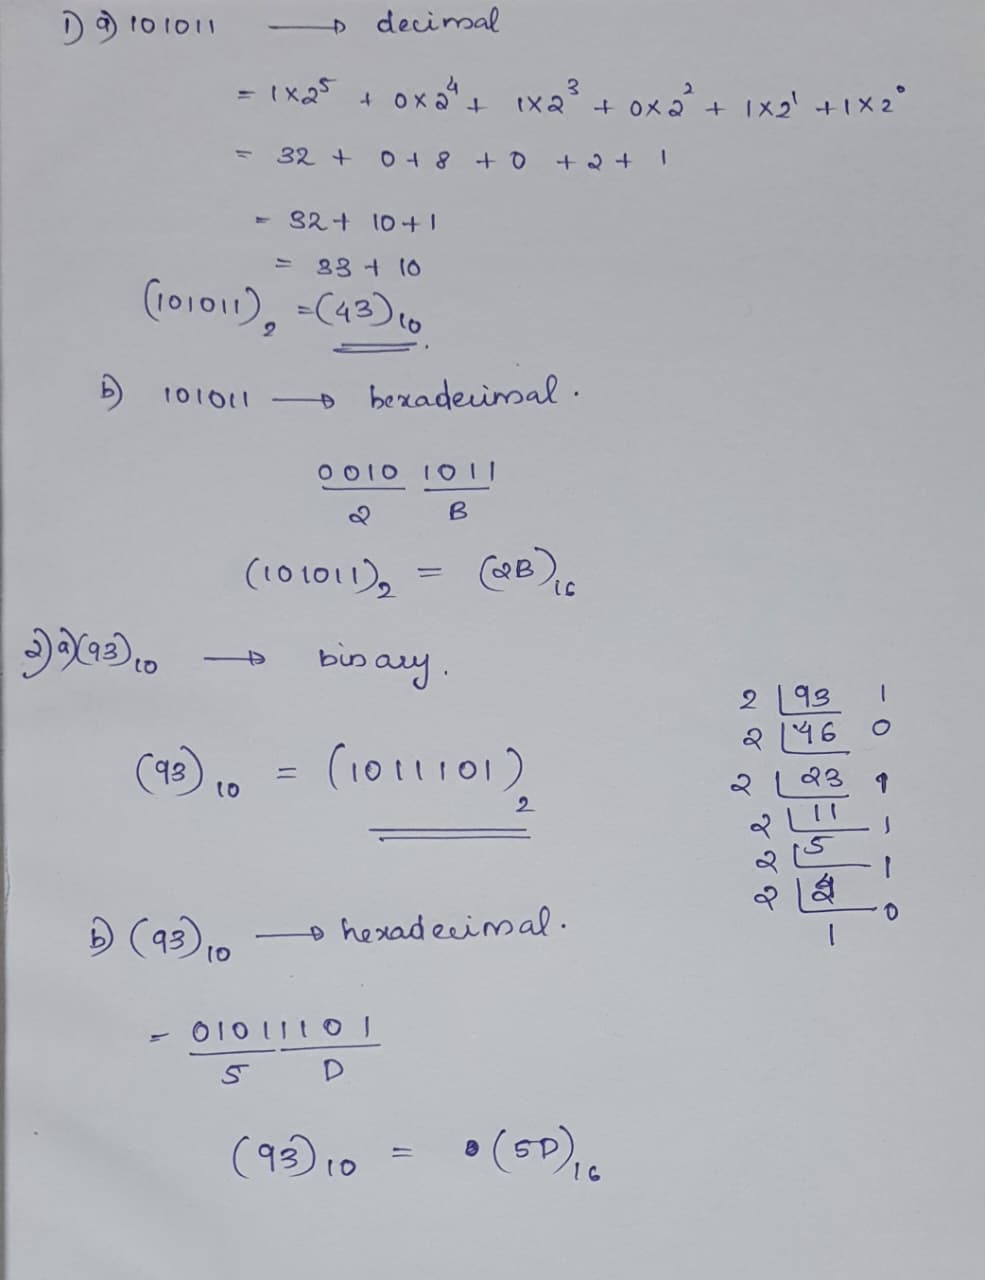 1) a) 101011 → decimal
= 1×2⁵ + 0×2⁴ + 1×2³ + 0×2² + 1×2¹ + 1×2⁰
= 32 + 0 + 8 + 0 + 2 + 1
= 32 + 10 + 1
= 33 + 10
(101011)₂ = (43)₁₀.
b) 101011 → hexadecimal.
0010 1011
2 B
(101011)₂ = (2B)₁₆
2) a) (93)₁₀ → binary.
(93)₁₀ = (1011101)₂
2 93 1
2 46 0
2 23 1
2 11 1
2 5 1
2 2 0
1
b) (93)₁₀ → hexadecimal.
= 01011101
5 D
(93)₁₀ = (5D)₁₆